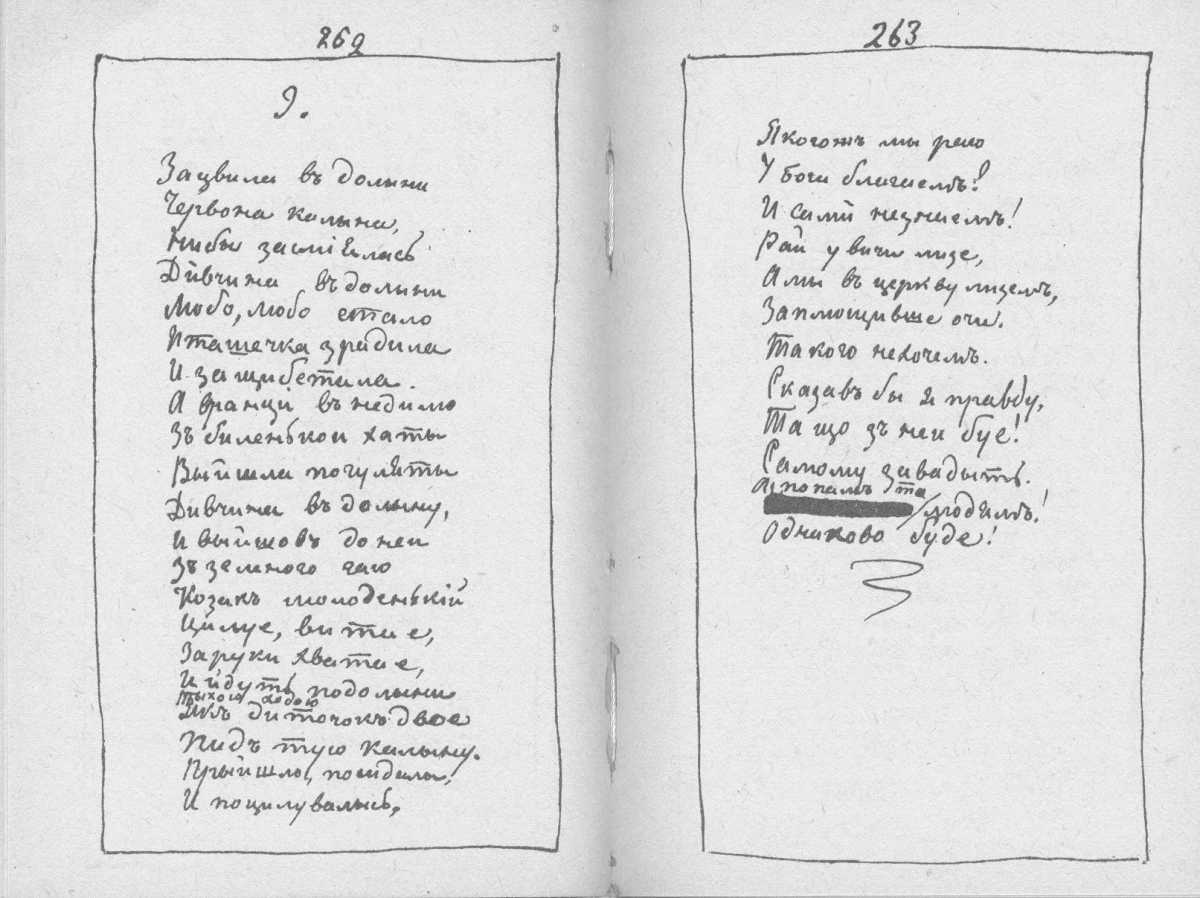 262
9.
Зацвила въ долыни
Червона калына,
Нибы засміялась
Дивчина въ долыни
Любо, любо стало
Пташечка зрадила
И защибетала.
А вранци въ недилю
Зъ биленькои хаты
Выйшла погуляты
Дивчина въ долыну,
И выйшовъ до неи
Зъ зеленого гаю
Козакъ молоденькій
Цилуе, витае,
За руки хватае,
И йдуть по долыни
Тыхою ходою
Якъ диточокъ двое
Пидъ тую калыну.
Прыйшлы, посидалы,
И поцилувалысь,
263
Якогожъ мы раю
У бога благаемъ?
И сами незнаемъ!
Рай у вичи лизе,
А мы въ церкву лиземъ,
Заплющивше очи.
Такого нехочемъ.
Сказавъ бы я правду,
Та що зъ неи буе!
Самому завадыть.
А попамъ та
людямъ!
Однаково буде!